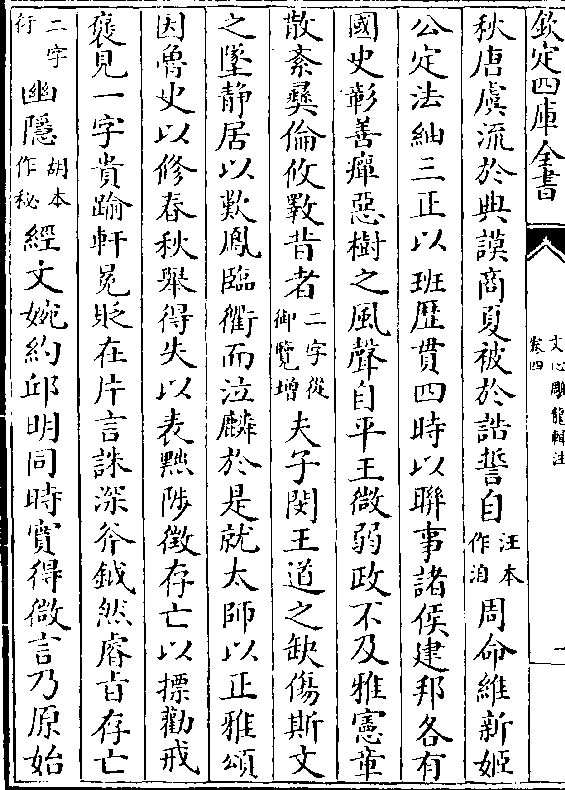 欽定四庫全書
文心雕龍輯注
卷四
一
秋唐虞流於典謨商夏被於誥誓自汪本作洎周命維新姬
公定法紬三正以班歴貫四時以聯事諸侯建邦各有
國史彰善癉惡樹之風聲自平王微弱政不及雅憲章
散紊彞倫攸斁昔者二字從御覽增夫子閔王道之缺傷斯文
之墜静居以歎鳳臨衢而泣麟於是就太師以正雅頌
因魯史以修春秋舉得失以表黜陟徴存亡以摽勸戒
褒見一字貴踰軒冕貶在片言誅深斧鉞然睿旨存亡
二字衍幽隱胡本作秘經文婉約邱明同時實得微言乃原始